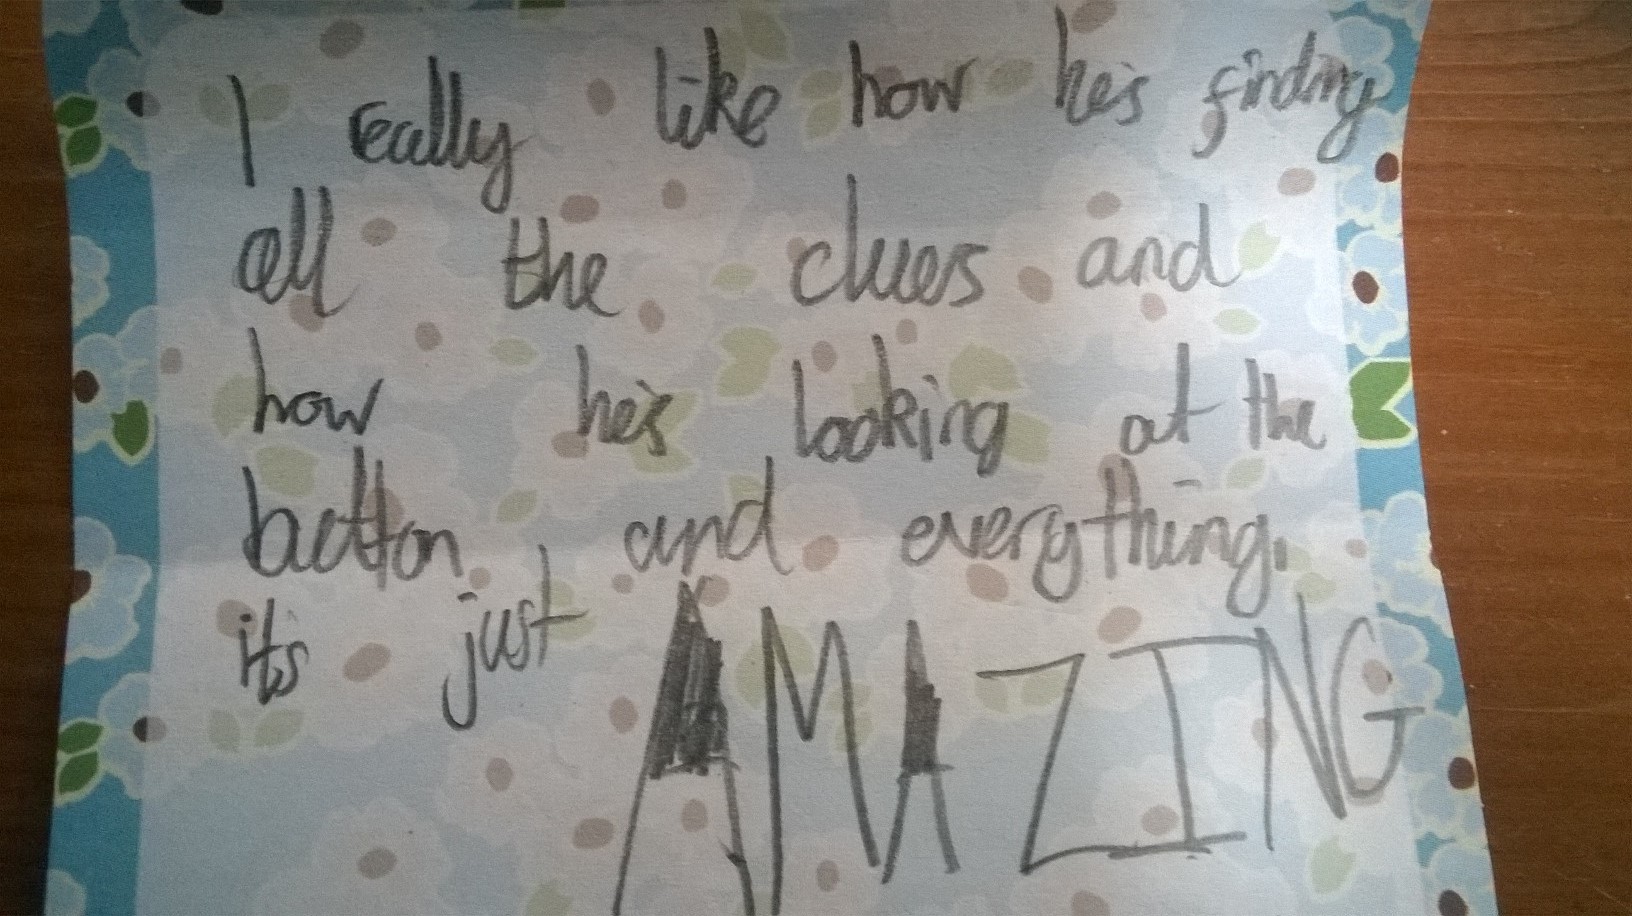 I really like how he's finding
all the clues and
how he's looking at the
button, and everything.
it's just AMAZING